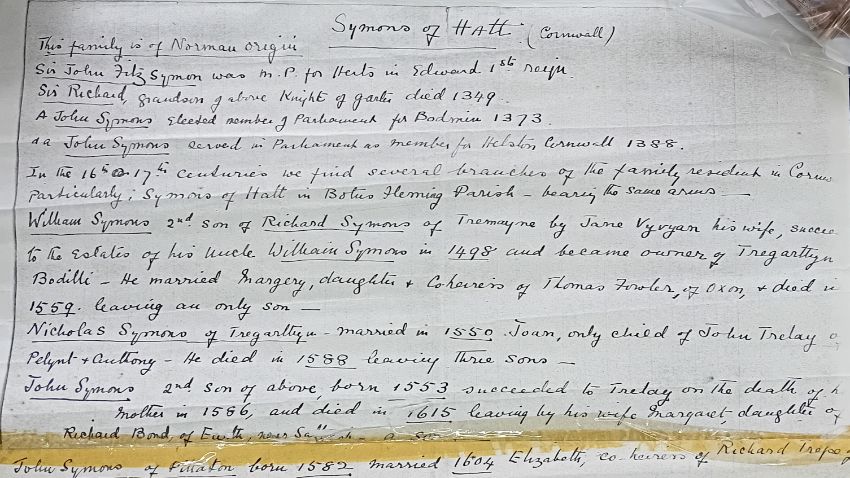 Symons of Hatt (Cornwall)
This family is of Norman origin
Sir John Fitz Symon was M.P. for Herts in Edward 1st reign
Sir Richard, grandson of above Knight of garter died 1349.
A John Symons elected member of Parliament for Bodmin 1373.
a John Symons served in Parliament as member for Helston Cornwall 1388.
In the 16th & 17th centuries we find several branches of the family resident in Cornw
Particularly; Symons of Hatt in Botus Fleming Parish - bearing the same arms —
William Symons 2nd son of Richard Symons of Tremayne by Jane Vyvyan his wife, succee
to the Estates of his Uncle William Symons in 1498 and became owner of Tregarttyn
Bodilli - He married Margery, daughter & Coheiress of Thomas Fowler, of Oxon, & died i
1559. leaving an only son —
Nicholas Symons of Tregarttyn - married in 1550 Joan, only child of John Trelay o
Pelynt & Anthony - He died in 1588 leaving three sons —
John Symons 2nd son of above, born 1553 succeeded to Trelay on the death of h
Mother in 1586, and died in 1615 leaving by his wife Margaret, daughter of
Richard Bond, of Earth, near a son
John Symons of Pillaton born 1582 married 1604 Elizabeth, co-heiress of Richard